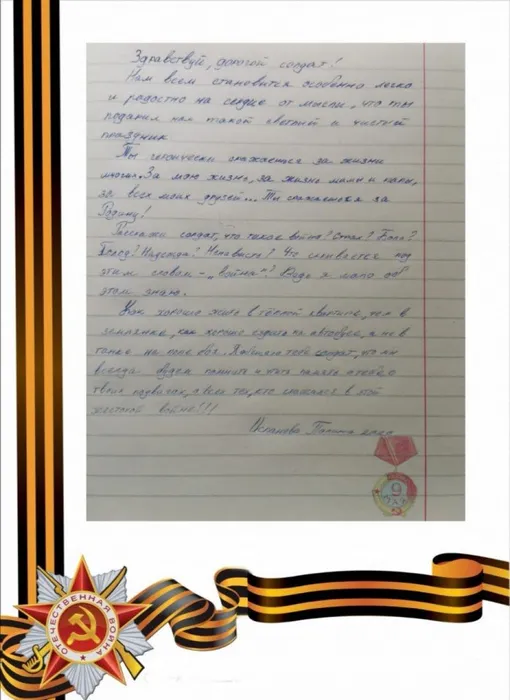 Здравствуй, дорогой солдат!
Нам всем становится особенно легко
и радостно на сердце от мысли, что ты
подарил нам такой светлый и чистый
праздник
Ты героически сражаешься за жизни
многих. За мою жизнь, за жизнь мамы и папы,
за всех моих друзей... Ты сражаешься за
Родину!
Расскажи солдат, что такое война? Страх? Боль?
Голод? Надежда? Ненависть? Что скрывается под
этим словом - "война"? Ведь я мало об
этом знаю.
Как хорошо жить в тёплой квартире, чем в
землянке, как хорошо ездить на автобусе, а не в
танке на поле боя. Я обещаю тебе солдат, что мы
всегда будем помнить и чтить память о тебе, о
твоих подвигах, о всех тех, кто сражался в этой
жестокой войне!!!
Полина
9
МАЯ
ОТЕЧЕСТВЕННАЯ ВОЙНА